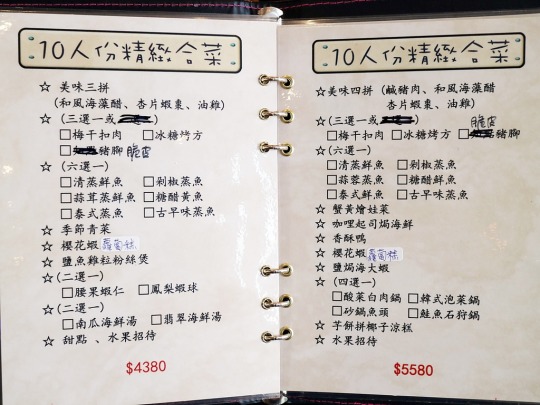 10人份精緻合菜
☆ 美味三拼
(和風海藻醋、杏片蝦棗、油雞)
☆ (三選一或
□梅干扣肉 □冰糖烤方
□豬腳 脆皮
☆ (六選一)
□清蒸鮮魚 □剁椒蒸魚
□蒜茸蒸鮮魚 □糖醋黃魚
□泰式蒸魚 □古早味蒸魚
☆ 季節青菜
☆ 櫻花蝦蘿蔔糕
☆ 鹽魚雞粒粉絲煲
☆ (二選一)
□腰果蝦仁 □鳳梨蝦球
☆ (二選一)
□南瓜海鮮湯 □翡翠海鮮湯
☆ 甜點、水果招待
$4380
10人份精緻合菜
☆ 美味四拼 (鹹豬肉、和風海藻醋
、杏片蝦棗、油雞)
☆ (三選一或
□梅干扣肉 □冰糖烤方 □脆皮豬腳
☆ (六選一)
□清蒸鮮魚 □剁椒蒸魚
□蒜蓉蒸魚 □糖醋鮮魚
□泰式鮮魚 □古早味蒸魚
☆ 蟹黃燴娃菜
☆ 咖哩起司焗海鮮
☆ 香酥鴨
☆ 櫻花蝦蘿蔔糕
☆ 鹽焗海大蝦
☆ (四選一)
□酸菜白肉鍋 □韓式泡菜鍋
□砂鍋魚頭 □鮭魚石狩鍋
☆ 芋餅拼椰子涼糕
☆ 水果招待
$5580